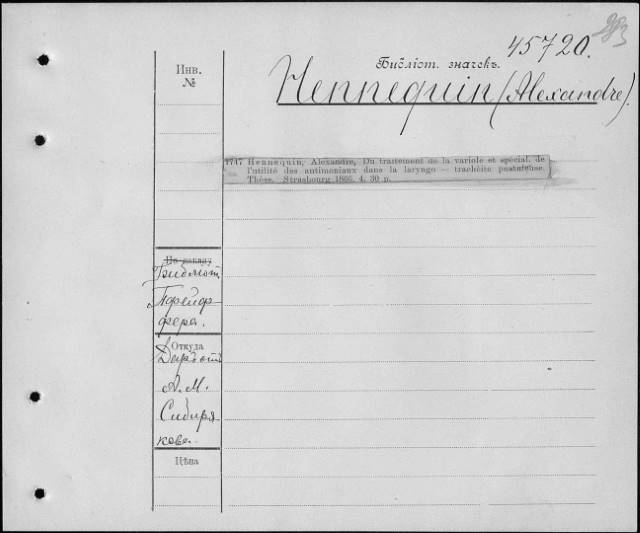 983
45720.
Библіот. значекъ.
Hennequin (Alexandre).
Инв.
№
1747 Hennequin, Alexandre, Du traitement de la variole et spécial. de
l'utilité des antimoniaux dans la laryngo-trachéite pustuleuse.
Thèse. Strasbourg 1866. 4. 30 p.
Библіот.
Пфейф
фера.
Откуда
Даръ отъ
А. М.
Сибиря
кова.
Цѣна